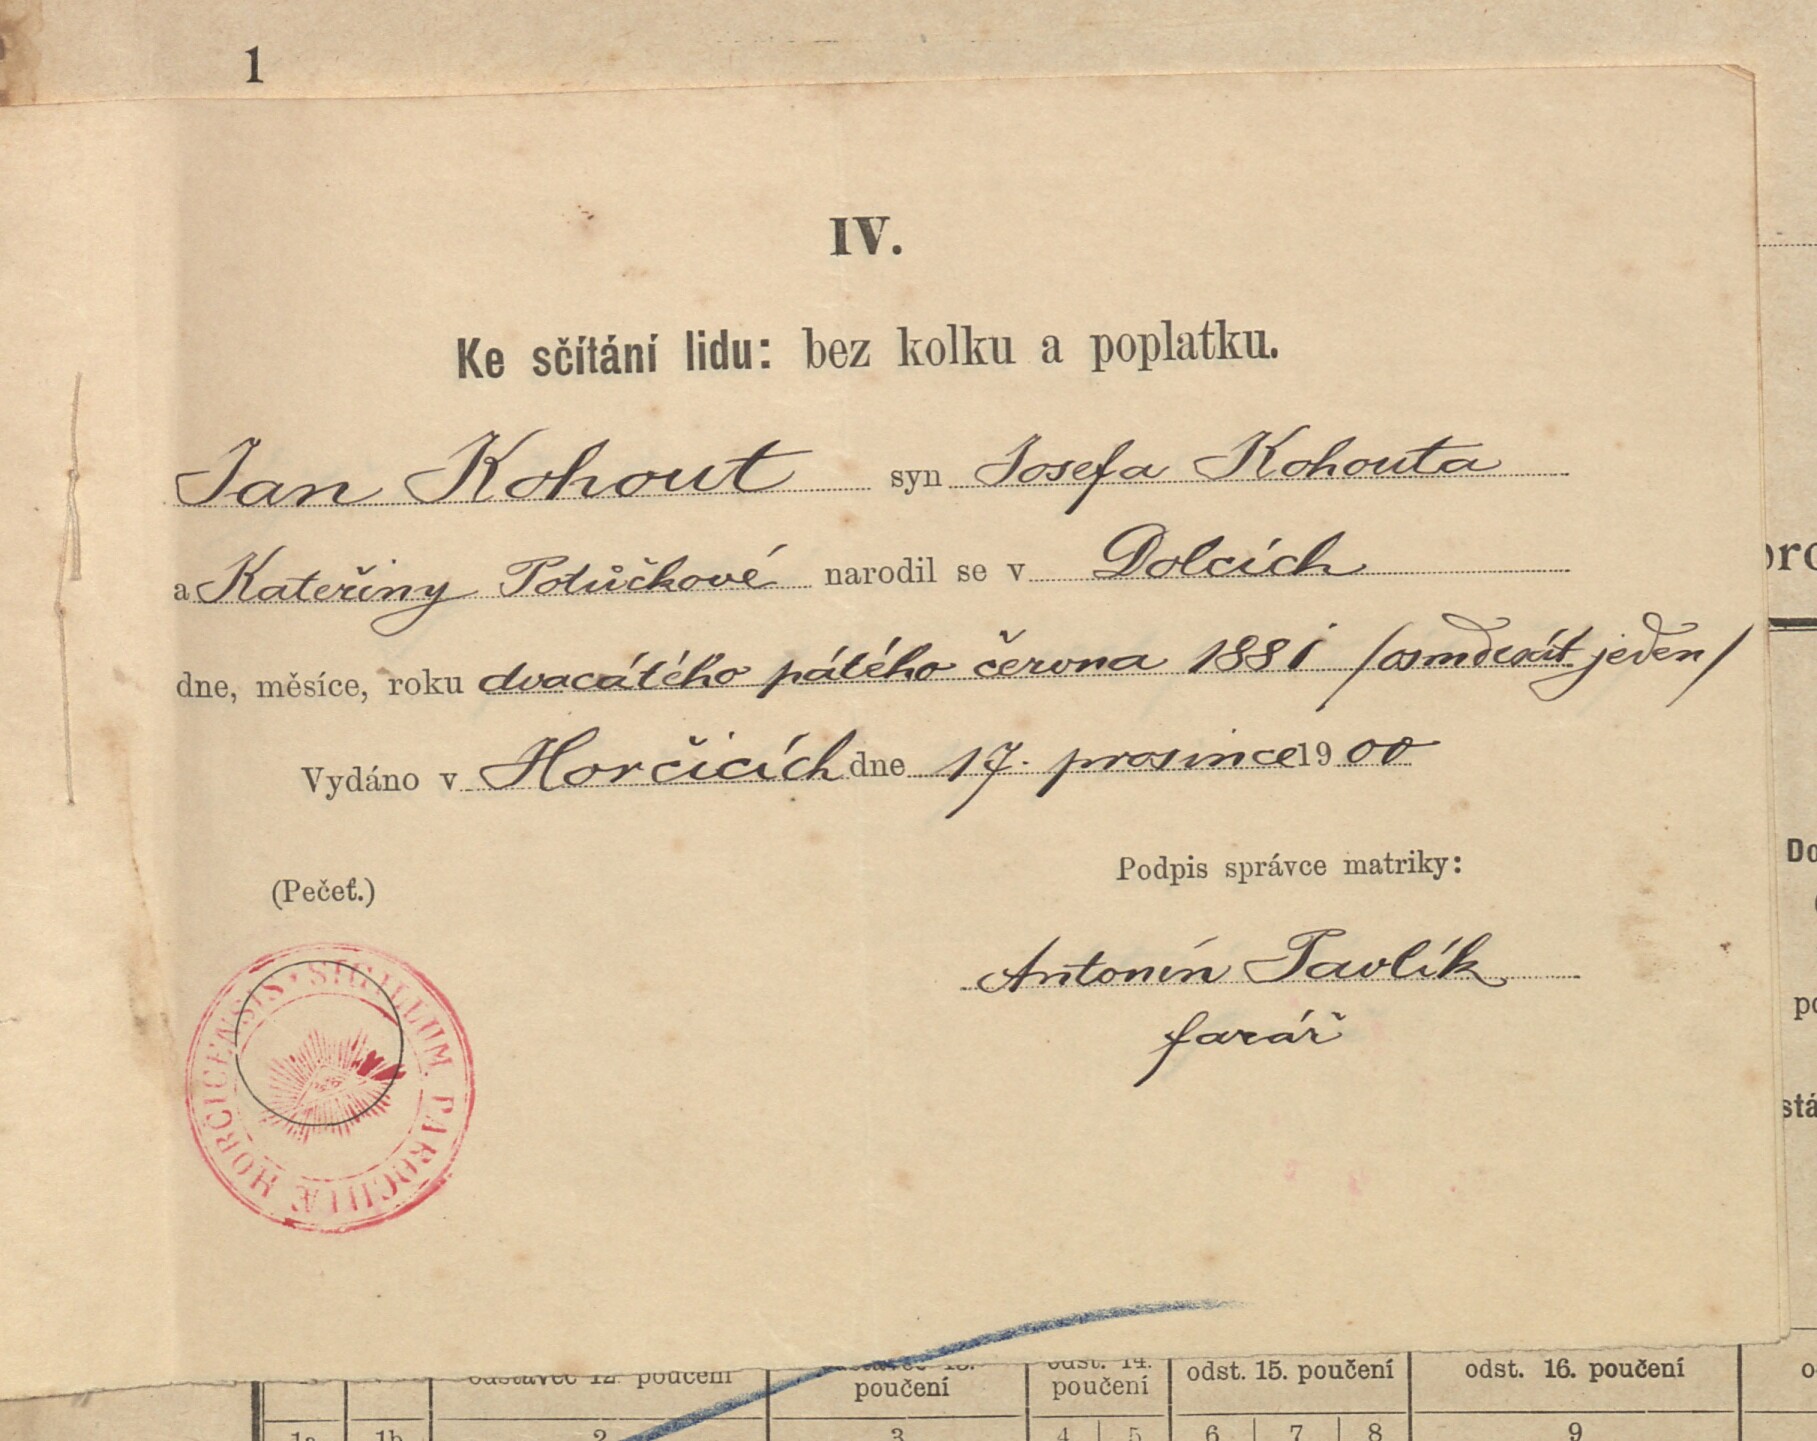 1
IV.
Ke sčítání lidu: bez kolku a poplatku.
Jan Kohout syn Josefa Kohouta
a Kateřiny Potůčkové narodil se v Dolcích
dne, měsíce, roku dvacátého pátého června 1881 /osmdesát jeden/
Vydáno v Horčicích dne 17. prosince 1900
(Pečeť.)
Podpis správce matriky:
Antonín Pavlík
farář
SIGILLUM PAROCHIÆ HORČICENSIS
odstavec 12. poučení
odstavec 13. poučení
odst. 14. poučení
odst. 15. poučení
odst. 16. poučení
1a 1b 2 3 4 5 6 7 8 9